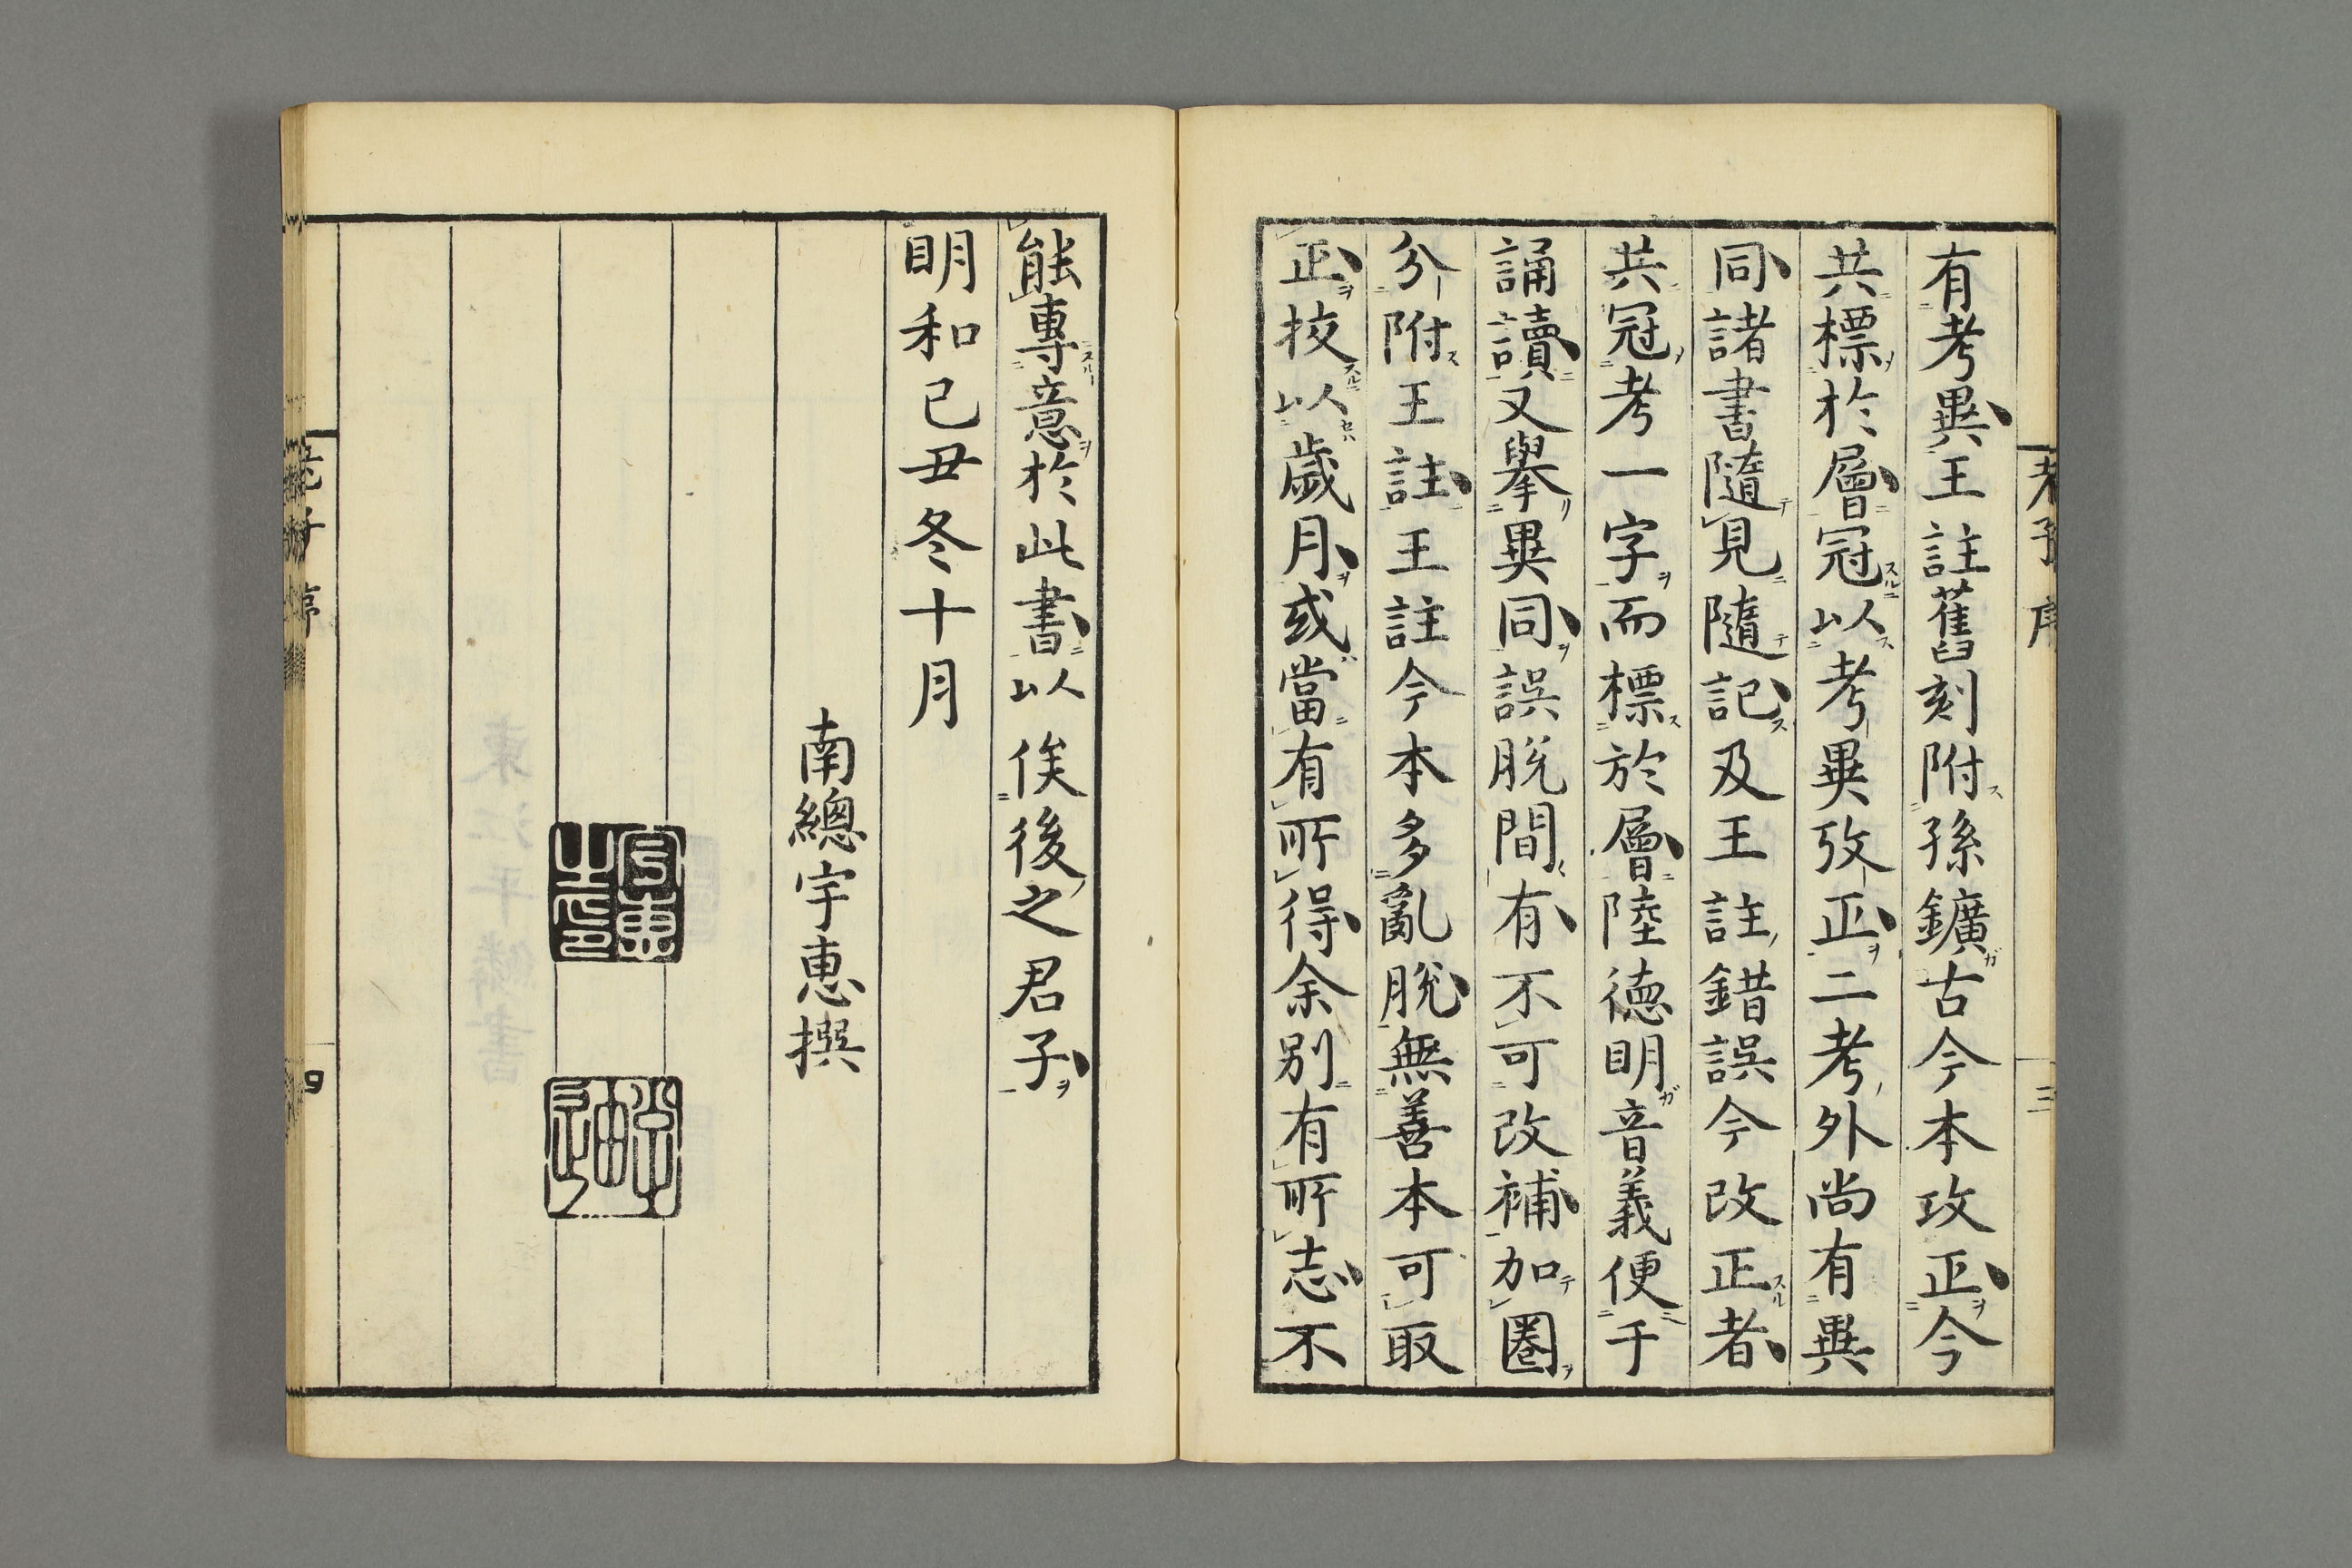 老子序
三
有考異王註舊刻附孫鑛古今本攷正今
共標於層冠以考異攷正二考外尚有異
同諸書隨見隨記及王註錯誤今改正者
共冠考一字而標於層陸德明音義便于
誦讀又擧異同誤脫間有不可改補加圈
分附王註王註今本多亂脫無善本可取
正挍以歲月或當有所得余別有所志不
能專意於此書以俟後之君子
明和己丑冬十月
南總宇惠撰
老子序
四